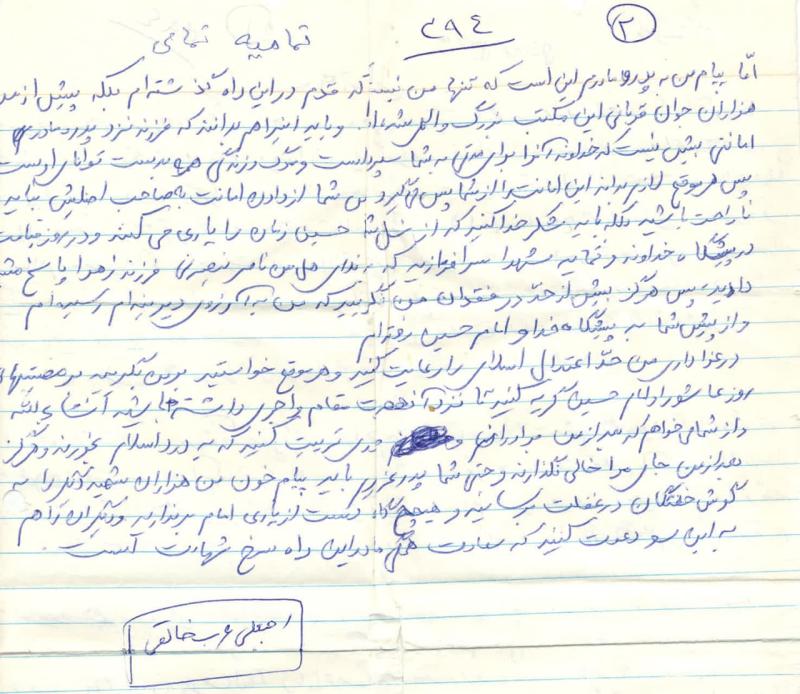 ۲
۲۹۴
تمامیه تمامی
امّا پیام من به پدر و مادرم این است که تنها من نیستم که قدم در این راه گذاشته‌ام بلکه پیش از من
هزاران جوان قربانی این مکتب بزرگ والهی شده‌اند. و باید این را هم بدانند که فرزند نزد پدر و مادر
امانتی بیش نیست که خداوند آنرا برای مدتی به شما سپرده است و مرگ و زندگی همه بدست توانای اوست
پس هر موقع لازم بداند این امانت را از شما پس میگیرد و شما از دادن امانت به صاحب اصلیش نباید
ناراحت باشید بلکه باید شکر خدا کنید که از نسل شما حسین زمان را یاری می کنند و در روز قیامت
در پیشگاه خداوند و تمامیه شهدا سرافرازید که به ندای هل من ناصر ینصرنی فرزند زهرا پاسخ مثبت
دادید، پس هرگز بیش از حدّ در فقدان من نگریید که من به آرزوی دیرینه‌ام رسیده‌ام
و از پیش شما به پیشگاه خدا و امام حسین رفته‌ام
در عزاداری من حدّ اعتدال اسلامی را رعایت کنید و هر موقع خواستید بر من بگریید بر مصیبتهای
روز عاشورا و امام حسین گریه کنید تا نزد آنحضرت مقام و اجری داشته باشید انشاءالله
و از شما می‌خواهم که بعد از من برادرانم و جدی تربیت کنید که به درد اسلام بخورند و هرگز
بعد از من جای مرا خالی نگذارند و حتی شما پدر عزیز باید پیام خون من هزاران شهید دیگر را به
گوش خفتگان در غفلت برسانید و هیچ گاه دست از یاری امام برندارید و دیگران را هم
به این سو دعوت کنید که سعادت همگی ما در این راه سرخ شهادت است.
رجبعلی عرب خالقی